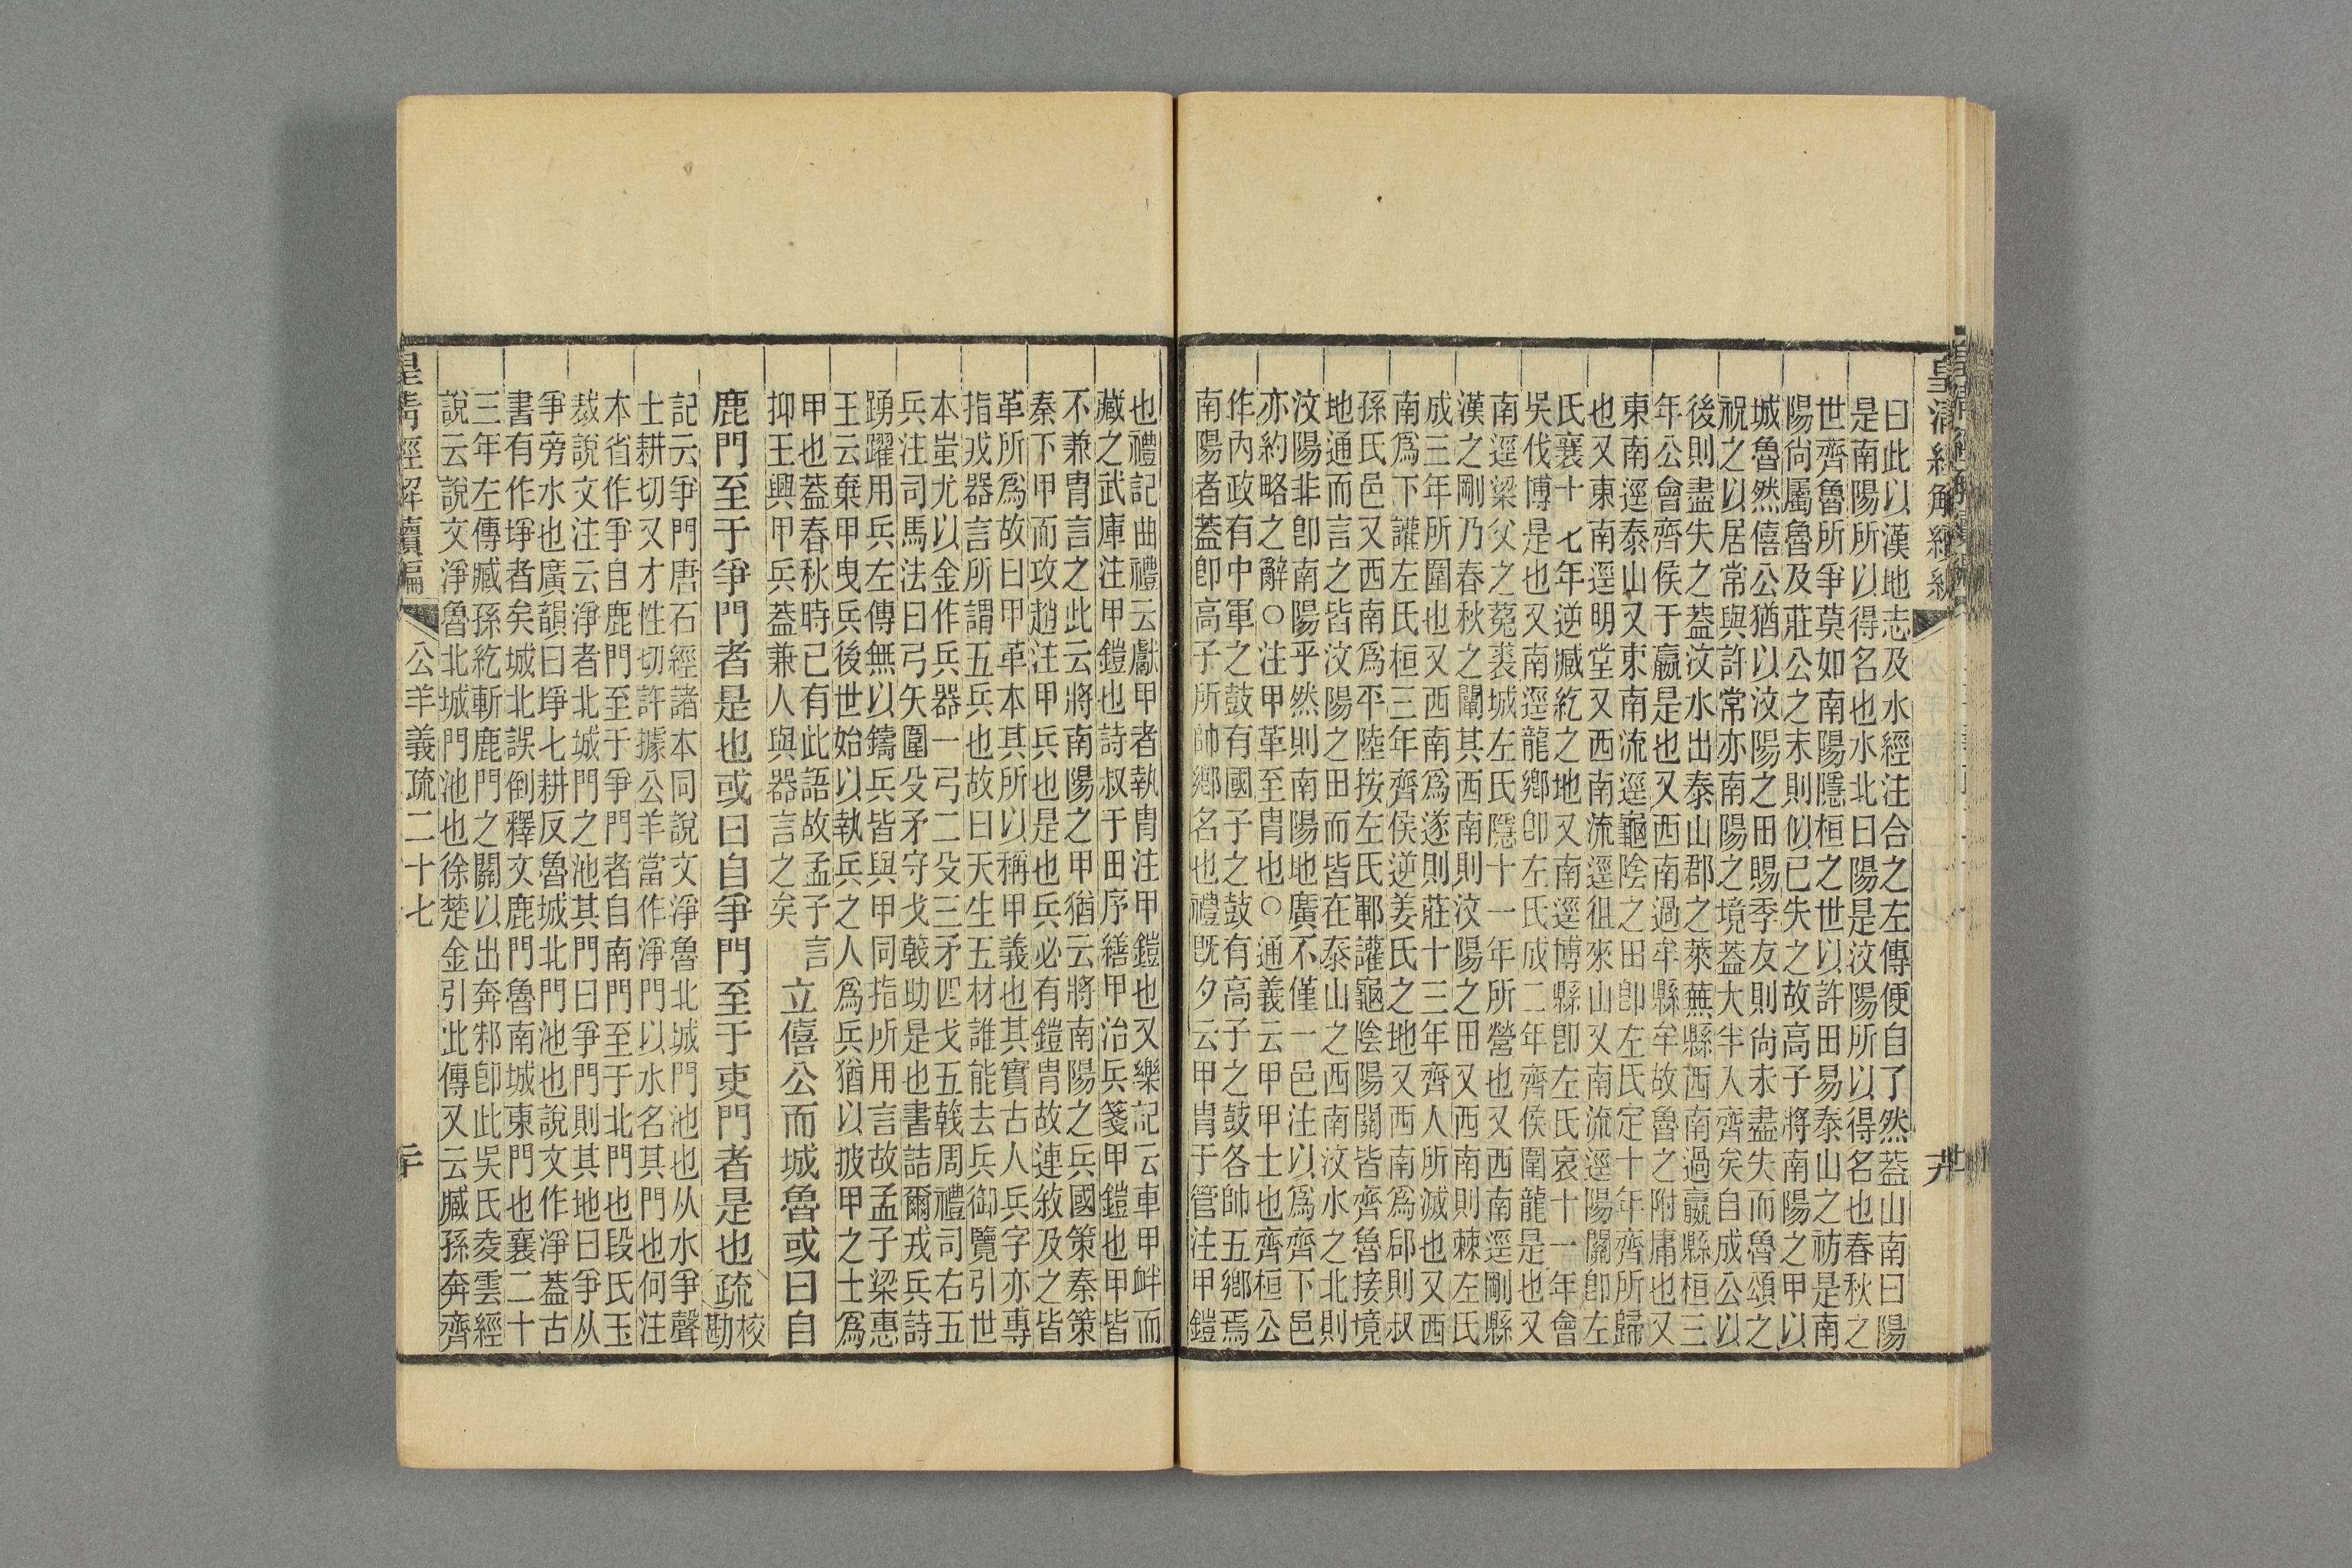 皇清經解續編
九
曰此以漢地志及水經注合之左傳便自了然蓋山南曰陽
是南陽所以得名也水北曰陽是汶陽所以得名也春秋之
世齊魯所爭莫如南陽隱桓之世以許田易泰山之祊是南
陽尙屬魯及莊公之末則似已失之故高子將南陽之甲以
城魯然僖公猶以汶陽之田賜季友則尙未盡失而魯頌之
祝之以居常與許常亦南陽之境蓋大半入齊矣自成公以
後則盡失之蓋汶水出泰山郡之萊蕪縣西南過嬴縣桓三
年公會齊侯于嬴是也又西南過牟縣牟故魯之附庸也又
東南逕泰山又東南流逕龜陰之田卽左氏定十年齊所歸
也又東南逕明堂又西南流逕徂來山又南流逕陽關卽左
氏襄十七年逆臧紇之地又南逕博縣卽左氏哀十一年會
吳伐博是也又南逕龍鄉卽左氏成二年齊侯圍龍是也又
南逕梁父之菟裘城左氏隱十一年所營也又西南逕剛縣
漢之剛乃春秋之闡其西南則汶陽之田又西南則棘左氏
成三年所圍也又西南爲遂則莊十三年齊人所滅也又西
南爲下讙左氏桓三年齊侯逆姜氏之地又西南爲郈則叔
孫氏邑又西南爲平陸按左氏鄆讙龜陰陽關皆齊魯接境
地通而言之皆汶陽之田而皆在泰山之西南汶水之北則
汶陽非卽南陽乎然則南陽地廣不僅一邑注以爲齊下邑
亦約略之辭○注甲革至冑也○通義云甲甲士也齊桓公
作內政有中軍之鼓有國子之鼓有高子之鼓各帥五鄉焉
南陽者蓋卽高子所帥鄉名也禮旣夕云甲冑于管注甲鎧
也禮記曲禮云獻甲者執冑注甲鎧也又樂記云車甲衅而
藏之武庫注甲鎧也詩叔于田序繕甲治兵箋甲鎧也甲皆
不兼冑言之此云將南陽之甲猶云將南陽之兵國策秦策
秦下甲而攻趙注甲兵也是也兵必有鎧冑故連敘及之皆
革所爲故曰甲革本其所以稱甲義也其實古人兵字亦專
指戎器言所謂五兵也故曰天生五材誰能去兵御覽引世
本蚩尤以金作兵器一弓二殳三矛四戈五戟周禮司右五
兵注司馬法曰弓矢圍殳矛守戈戟助是也書詰爾戎兵詩
踴躍用兵左傳無以鑄兵皆與甲同指所用言故孟子梁惠
王云棄甲曳兵後世始以執兵之人爲兵猶以披甲之士爲
甲也蓋春秋時已有此語故孟子言
抑王興甲兵蓋兼人與器言之矣
立僖公而城魯或曰自
鹿門至于爭門者是也或曰自爭門至于吏門者是也疏校
勘
記云爭門唐石經諸本同說文淨魯北城門池也从水爭聲
士耕切又才性切許據公羊當作淨門以水名其門也何注
本省作爭自鹿門至于爭門者自南門至于北門也段氏玉
裁說文注云淨者北城門之池其門曰爭門則其地曰爭从
爭旁水也廣韻曰埩七耕反魯城北門池也說文作淨蓋古
書有作埩者矣城北誤倒釋文鹿門魯南城東門也襄二十
三年左傳臧孫紇斬鹿門之關以出奔邾卽此吳氏夌雲經
說云說文淨魯北城門池也徐楚金引此傳又云臧孫奔齊
皇清經解續編
公羊義疏二十七